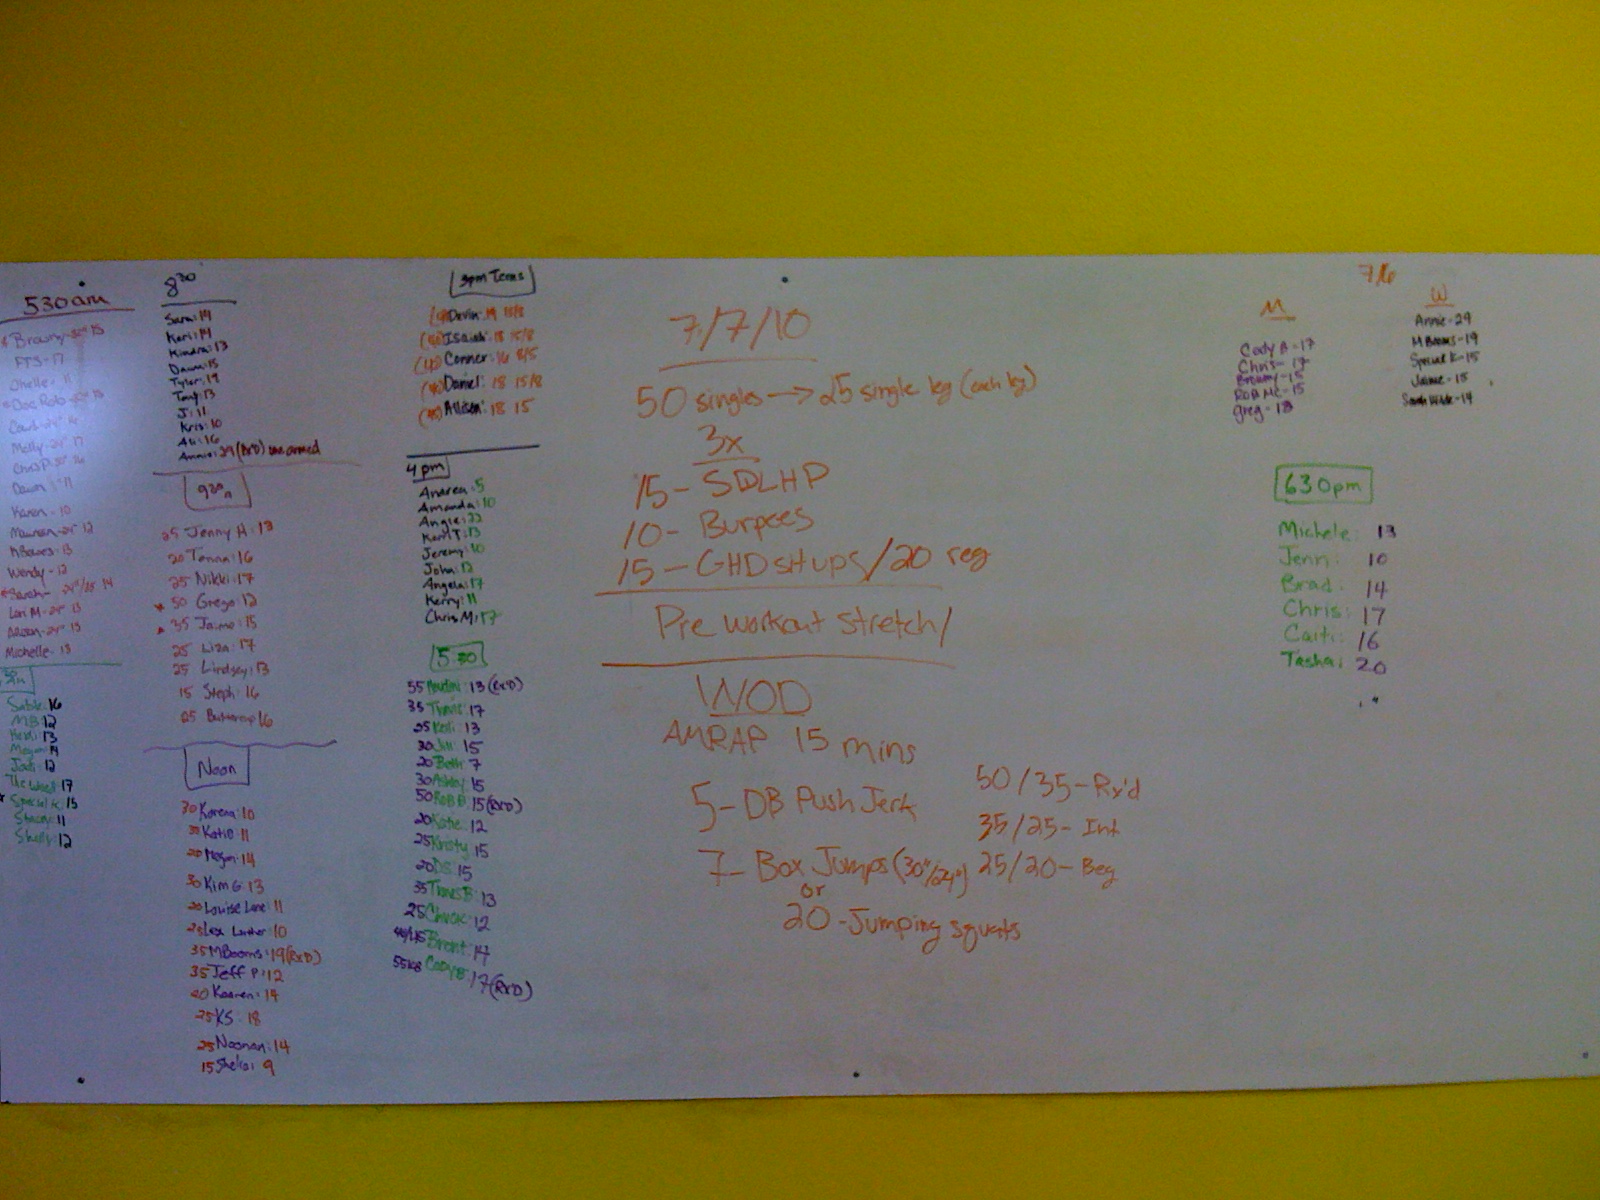 530am
Browny-
FTS-17
Dawn 11
Karen-10
Wendy-12
Lori M-24" 13
Michelle-13
Sable 16
MB 12
Heidi 13
Megan 14
Jodi 12
The Wool 17
Special K 15
Stacey 11
Shelly 12
8³⁰
Sara: 14
Keri: 14
Kindra: 13
Dawn: 15
Tyler: 19
Tony: 13
J: 11
Kris: 10
Ali: 16
Annie: 29 (RxD) one armed
9³⁰a
25 Jenny H: 13
20 Tanna: 16
25 Nikki: 17
50 Grego: 12
35 Jaime: 15
25 Liza: 17
25 Lindsey: 13
15 Steph: 16
25 Buttercup 16
Noon
30 Karena: 10
Katie: 11
20 Megan: 14
30 Kim G: 13
20 Louise Lane: 11
25 Lex Luther: 10
35 MBooms: 19 (RxD)
35 Jeff P: 12
20 Kaaren: 14
25 KS: 18
25 Noonan: 14
15 Shelia: 9
3pm Teens
Devin: 19 15/8
Isaiah: 18 15/8
Conner: 16 8/5
Daniel: 18 15/8
Allison: 18 15
4pm
Andrea: 5
Amanda: 10
Angie: 22
Kari T: 13
Jeremy: 10
John: 12
Angela: 17
Kerry: 11
Chris M: 17
5:30
55 : 13 (RxD)
35 Travis: 17
25 Kelli: 13
30 Jill: 15
20 Beth: 7
30 Ashley: 15
50 Rob B: 15 (RxD)
20 Katie: 12
25 Kristy: 15
20 DS: 15
35 Travis B: 13
25 Chuck: 12
Brent: 14
55lbs Cody B: 17 (RxD)
7/7/10
50 singles → 25 single leg (each leg)
3x
15 - SDLHP
10 - Burpees
15 - GHD situps/20 reg
Pre workout stretch/
WOD
AMRAP 15 mins
5 - DB Push Jerk
7 - Box Jumps (30"/24")
or
20 - Jumping squats
50/35 - Rx'd
35/25 - Int
25/20 - Beg
7/6
M
Cody B - 17
Chris - 17
Browny - 15
Rob Mc - 15
greg - 13
W
Annie - 29
MBooms - 19
Special K - 15
Jaime - 15
Sarah Wilde - 14
630pm
Michele: 13
Jenn: 10
Brad: 14
Chris: 17
Caiti: 16
Tasha: 20